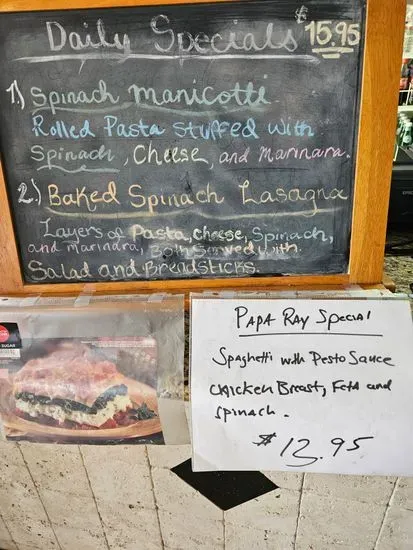 Daily Specials $15.95
1.) Spinach Manicotti
Rolled Pasta Stuffed with
Spinach, Cheese, and Marinara.
2.) Baked Spinach Lasagna
Layers of Pasta, Cheese, Spinach,
and marinara, Both Served with
Salad and Breadsticks.
SUGAR
PAPA RAY SPECIAL
Spaghetti with Pesto Sauce
chicken Breast, Feta and
spinach.
$13.95